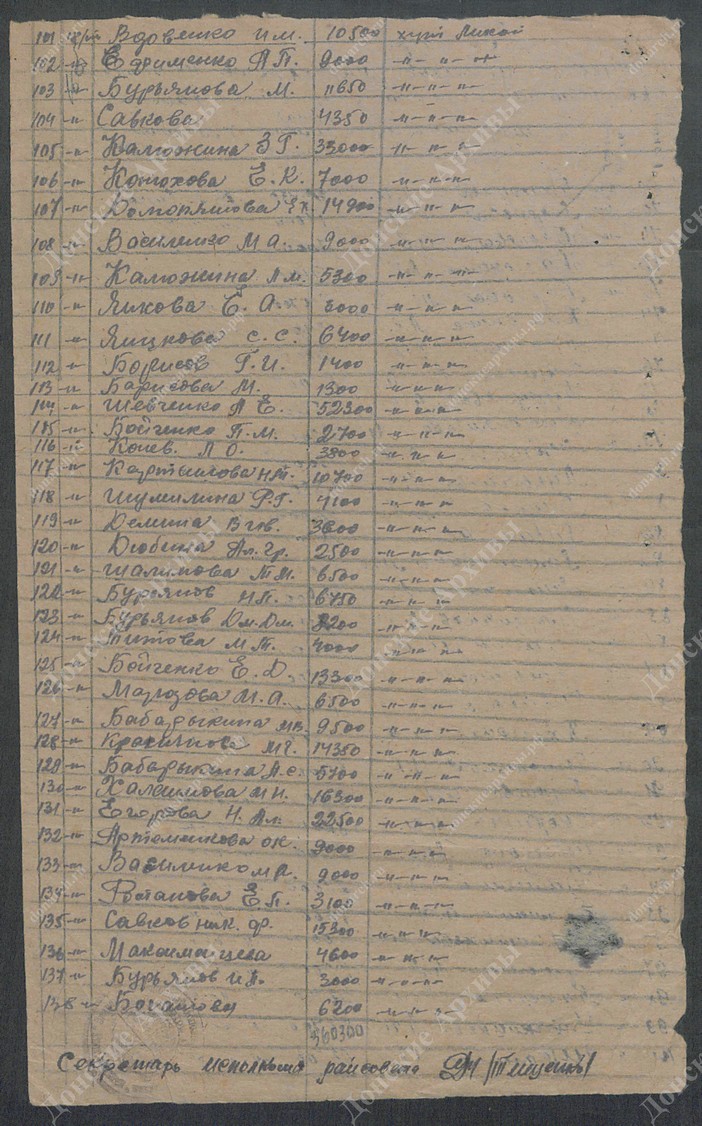 101 Вдовенко И.М. 10500 хут. Лихой
102 -"- Ефрименко А.П. 9000 -"-"-"-
103 Бурьянова М. 11650 -"-"-"-
104 -"- Савкова 4350 -"-"-"-
105 -"- Калюжина З Г. 33000 -"-"-"-
106 -"- Конюхова Е.К. 7000 -"-"-"-
107 -"- 14900 -"-"-"-
108 -"- Василенко М А. 9000 -"-"-"-
109 -"- Калюжина А.М. 5300 -"-"-"-
110 -"- Яикова Е. А. -"-"-"-
111 -"- Яицкова С.С. 6400 -"-"-"-
112 -"- Борисов Г.И. 1400 -"-"-"-
113 -"- Барисова М. 1300 -"-"-"-
114 -"- Шевченко А Е. 52300 -"-"-"-
115 -"- Бойченко П.М. 2700 -"-"-"-
116 -"- Конев. Л О. 3800 -"-"-"-
117 -"- 10700 -"-"-"-
118 -"- Шумилина Ф.Г. 4100 -"-"-"-
119 -"- Демина 3600 -"-"-"-
120 -"- Дюбина Ал. Гр. 2500 -"-"-"-
121 -"- Шалимова Т.М. 6500 -"-"-"-
122 -"- Бурянов Н.П. 6750 -"-"-"-
123 -"- Бурьянов Дм. Дм. 8200 -"-"-"-
124 -"- Титова М.Т. -"-"-"-
125 -"- Бойченко Е. Д. 13300 -"-"-"-
126 -"- Марозова М.А. 6500 -"-"-"-
127 -"- Бабарыкина 9500 -"-"-"-
128 -"- 14350 -"-"-"-
129 -"- Бабарыкина А.С. 5700 -"-"-"-
130 -"- Халаимова М Н. 16300 -"-"-"-
131 -"- Егорова Н. Ал. 22500 -"-"-"-
132 -"- Артеменкова О.К. 9000 -"-"-"-
133 -"- Василенко 9000 -"-"-"-
134 -"- Е.П. 3100 -"-"-"-
135 -"- Савков ник. др. 15300 -"-"-"-
136 -"- 4600 -"-"-"-
137 -"- Бурьянов И.А. 3000 -"-"-"-
138 -"- 6200 -"-"-"-
560300
Секретарь исполкома райсовета /Тищенко/